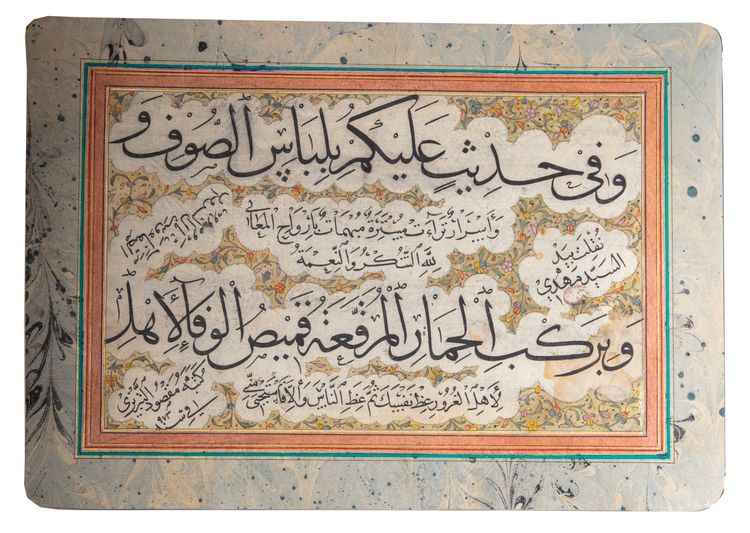 وَفي حَدِيثٍ عَلَيْكُمْ بِلِبَاسِ الصُّوفِ وَ
وأسرار تراءت بأرواح المعاني
لله الشكر والنعمة
نقلت بيد
السيد مهدي
وَيركب الحمار المرقعة قميص الوفا لأهل
لأهل الغرور عظ نفسك ثم عظ الناس وإلا فاستحي مني
كتبه مقصود التبريزي
في سنة